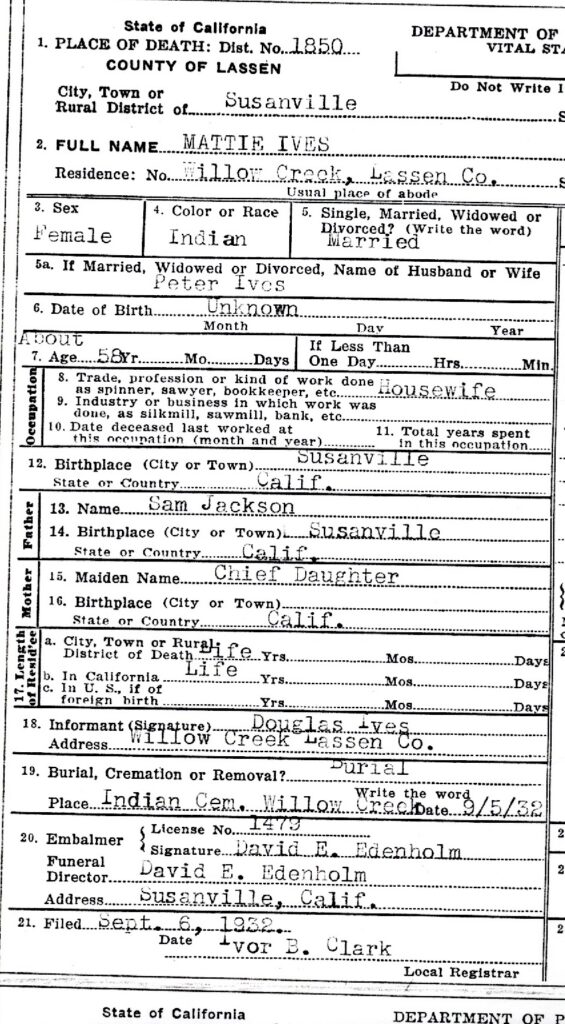 State of California
DEPARTMENT OF
1. PLACE OF DEATH: Dist. No. 1850
VITAL STA
COUNTY OF LASSEN
Do Not Write I
City, Town or
Rural District of Susanville
2. FULL NAME MATTIE IVES
Residence: No. Willow Creek, Lassen Co.
Usual place of abode
3. Sex
Female
4. Color or Race
Indian
5. Single, Married, Widowed or
Divorced? (Write the word)
Married
5a. If Married, Widowed or Divorced, Name of Husband or Wife
Peter Ives
6. Date of Birth Unknown
Month Day Year
About
7. Age 58 Yr. Mo. Days
If Less Than
One Day Hrs. Min.
Occupation
8. Trade, profession or kind of work done
as spinner, sawyer, bookkeeper, etc. Housewife
9. Industry or business in which work was
done, as silkmill, sawmill, bank, etc.
10. Date deceased last worked at
this occupation (month and year)
11. Total years spent
in this occupation
12. Birthplace (City or Town) Susanville
State or Country Calif.
Father
13. Name Sam Jackson
14. Birthplace (City or Town) Susanville
State or Country Calif.
Mother
15. Maiden Name Chief Daughter
16. Birthplace (City or Town)
State or Country Calif.
17. Length
of Resid'ce
a. City, Town or Rural
District of Death Life Yrs. Mos. Days
b. In California Life
c. In U. S., if of
foreign birth Yrs. Mos. Days
18. Informant (Signature) Douglas Ives
Address Willow Creek Lassen Co.
19. Burial, Cremation or Removal? Burial
Write the word
Place Indian Cem. Willow Creek Date 9/5/32
20. Embalmer { License No. 1479
Signature David E. Edenholm
Funeral
Director David E. Edenholm
Address Susanville, Calif.
21. Filed Sept. 6, 1932.
Date Ivor B. Clark
Local Registrar
State of California
DEPARTMENT OF P